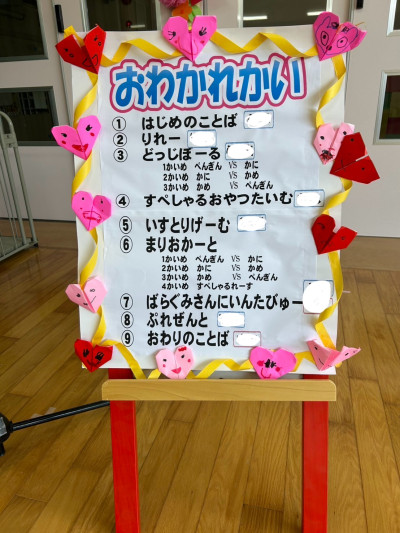 おわかれかい
① はじめのことば
② りれー
③ どっじぼーる
1かいめ ぺんぎん VS かに
2かいめ かに VS かめ
3かいめ かめ VS ぺんぎん
④ すぺしゃるおやつたいむ
⑤ いすとりげーむ
⑥ まりおかーと
1かいめ ぺんぎん VS かに
2かいめ かに VS かめ
3かいめ かめ VS ぺんぎん
4かいめ すぺしゃるれーす
⑦ ばらぐみさんにいんたびゅー
⑧ ぷれぜんと
⑨ おわりのことば